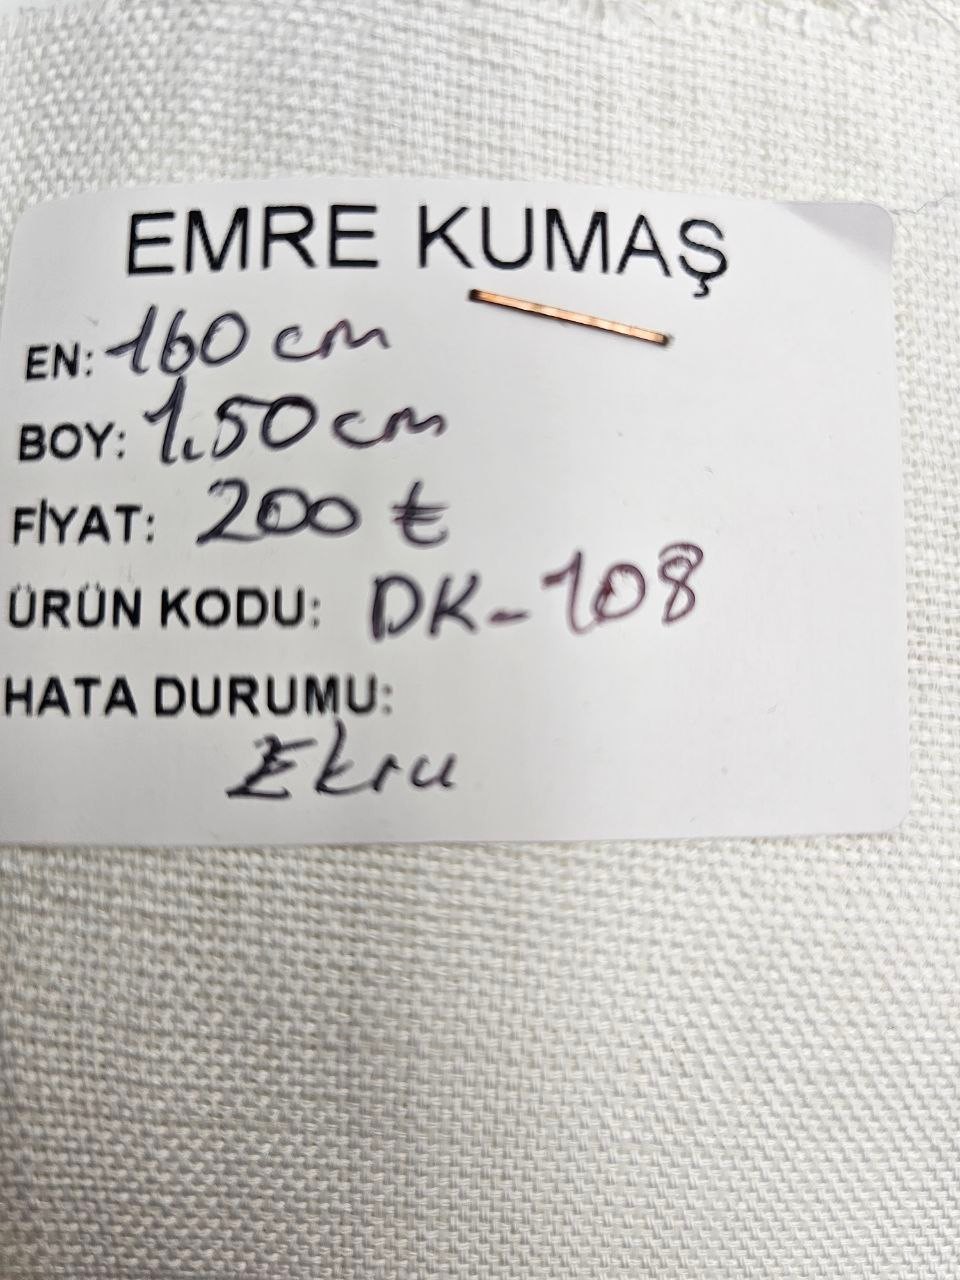 EMRE KUMAŞ
EN: 160 cm
BOY: 1.50 cm
FİYAT: 200 ₺
ÜRÜN KODU: DK-108
HATA DURUMU:
Ekru